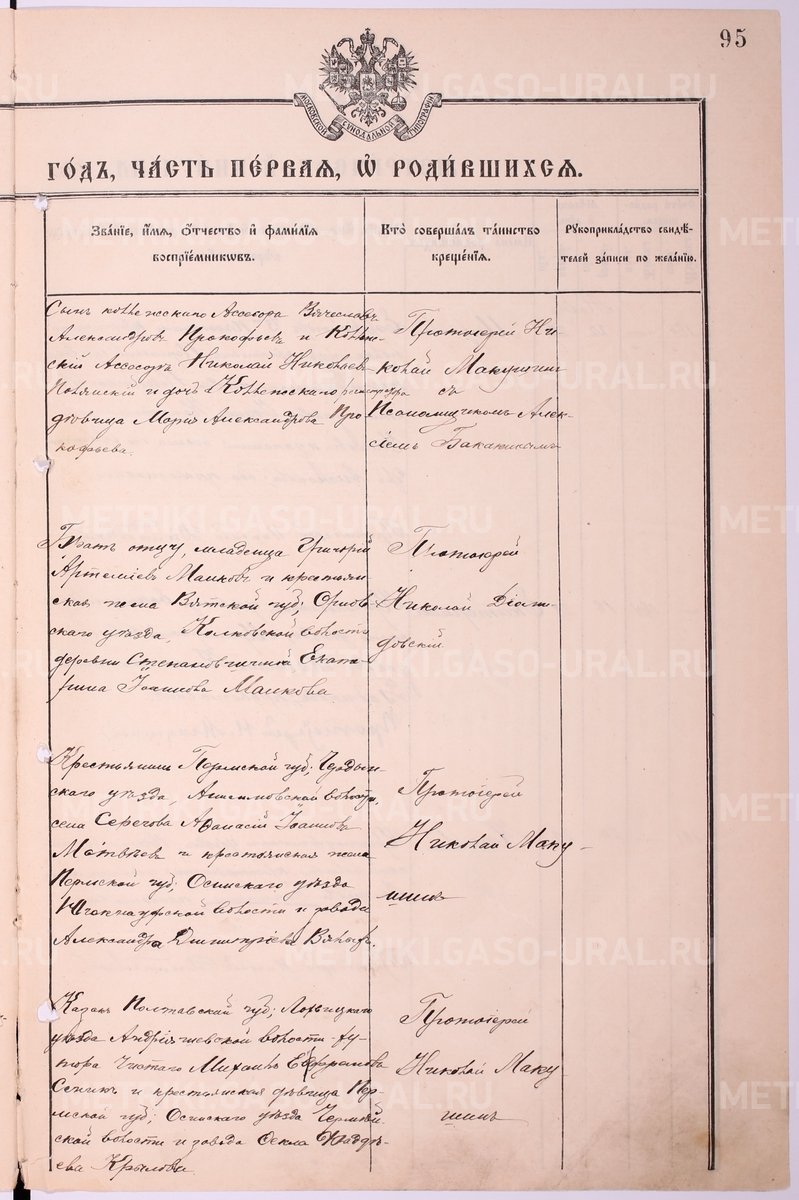 95
МОСКОВСКОЙ СѴНОДАЛЬНОЙ ТИПОГРАФІИ
ГО́ДЪ, ЧА́СТЬ ПЕ́РВАЯ, Ѡ҆ РОДИ́ВШИХСЯ.
Зва́нїе, и҆́мя, ѻ҆́тчество и҆ фами́лїя
воспрїе́мникѡвъ.
Кто̀ соверша́лъ та́инство
креще́нїя.
Рꙋкоприкла́дство свидѣ́-
телей за́писи по жела́нїю.
Сынъ коллежскаго Ассесора Вячеславъ
Александровъ Прокофьевъ и Коллеж-
скій Ассесоръ Николай Николаевъ
и дочь Коллежскаго регистратора
дѣвица Марія Александрова Про
кофьева.
Протоіерей Ни-
колай Макушинъ
съ
Псаломщикомъ Алек-
сіемъ
Братъ отцу, младенца Григорій
Артеміевъ Маиковъ и крестьян
ская жена Вятской губ; Орлов
скаго уѣзда, волости
деревни Екате-
рина Іоаннова Маикова.
Протоіерей
Николай Діоми-
довскій
Крестьянинъ Пермской губ. Чердын-
скаго уѣзда, Анисимовской волости,
села Серегова Аѳанасій Іоанновъ
Матвѣевъ и крестьянская жена
Пермской губ; Осинскаго уѣзда
Югокнауфской волости и завода
Александра Димитріева
Протоіерей
Николай Маку-
шинъ
Казакъ Полтавской губ; Лохвицкаго
уѣзда Андріяшевской волости ху-
тора Чистаго Михаилъ Евфремовъ
Сеникъ и крестьянская дѣвица Пер-
мской губ; Осинскаго уѣзда
ской волости и завода Ѳекла Ѳаддѣ-
ева Крылова.
Протоіерей
Николай Маку
шинъ
METRIKI.GASO-URAL.RU